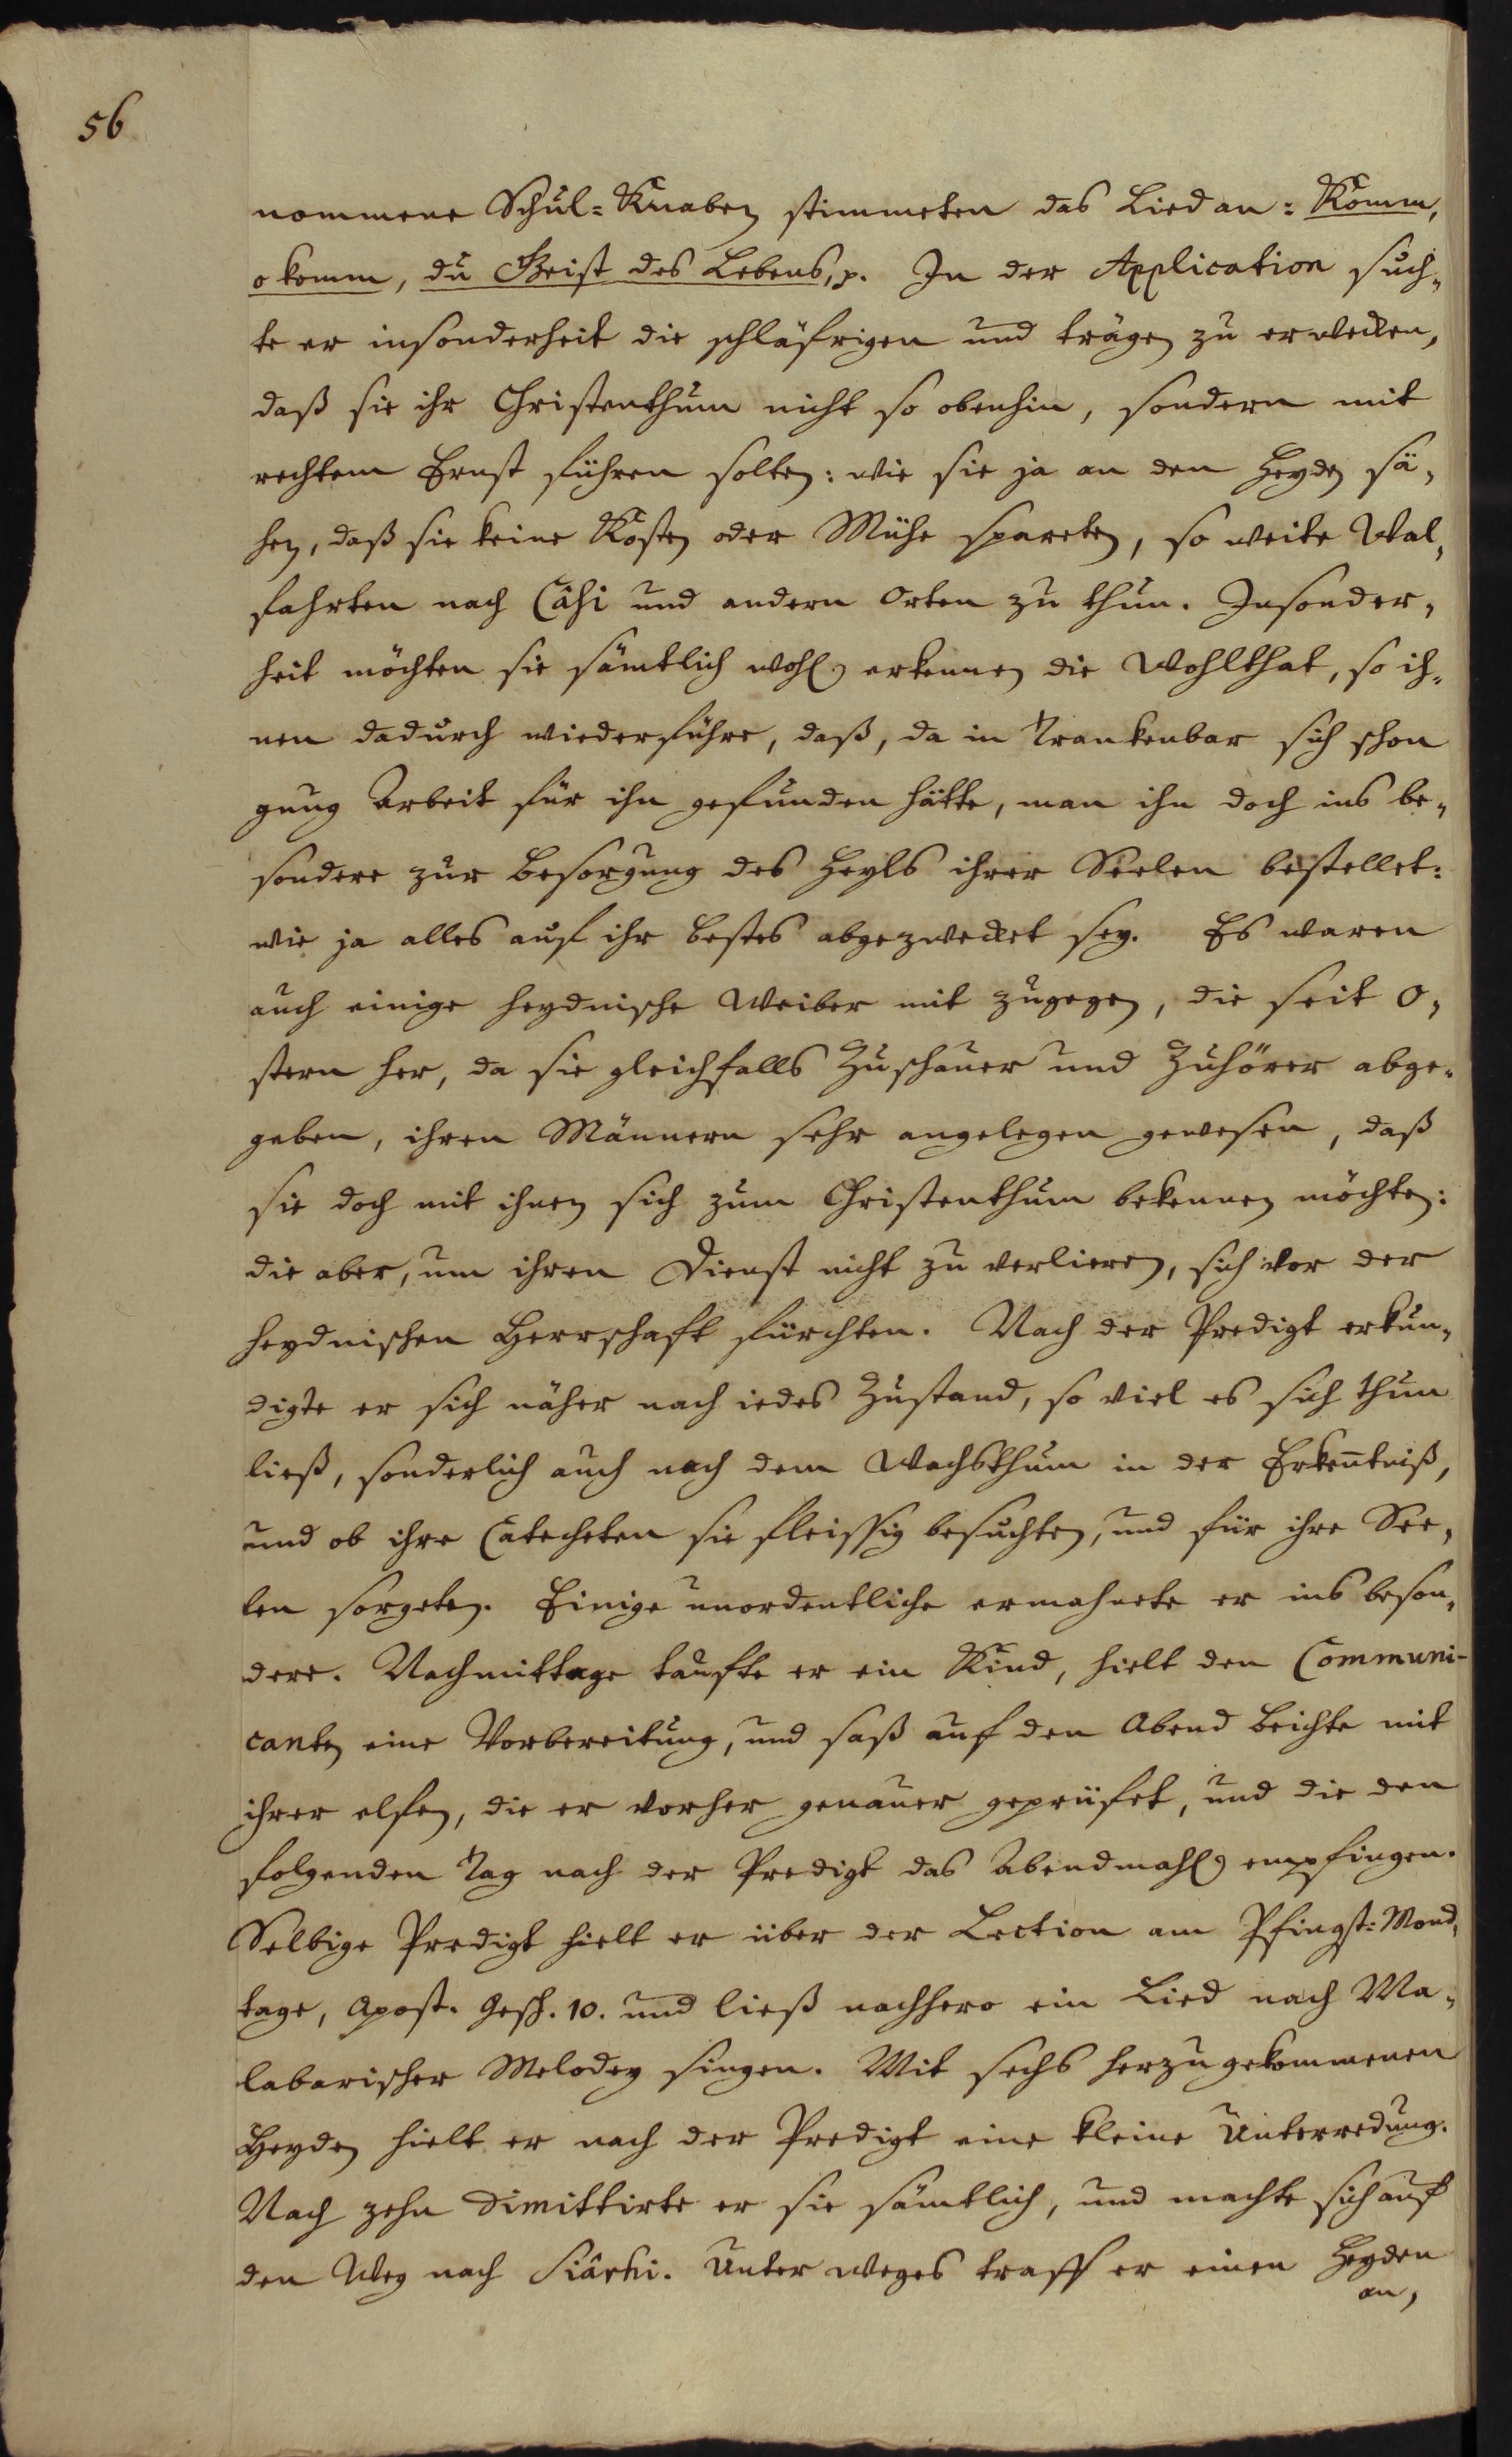 56
nommene Schul=Knaben stimmeten das Lied an: Komm,
o komm, du Geist des Lebens, p. In der Application such-
te er insonderheit die schläfrigen und trägen zu erwecken,
daß sie ihr Christenthum nicht so obenhin, sondern mit
rechtem Ernst führen solten: wie sie ja an den Heyden sä-
hen, daß sie keine Kosten oder Mühe spareten, so weite Wal-
fahrten nach Câsi und andern Orten zu thun. Insonder-
heit möchten sie sämtlich wohl erkennen die Wohlthat, so ih-
nen dadurch wiederführe, daß, da in Trankenbar sich schon
gnug Arbeit für ihn gefunden hätte, man ihn doch ins be-
sondere zur Besorgung des Heyls ihrer Seelen bestellet:
wie ja alles auf ihr bestes abgezwecket sey. Es waren
auch einige heydnische Weiber mit zugegen, die seit O-
stern her, da sie gleichfalls Zuschauer und Zuhörer abge-
geben, ihren Männern sehr angelegen gewesen, daß
sie doch mit ihnen sich zum Christenthum bekennen möchten:
die aber, um ihren Dienst nicht zu verlieren, sich vor der
heydnischen Herrschaft fürchten. Nach der Predigt erkun-
digte er sich näher nach iedes Zustand, so viel es sich thun
ließ, sonderlich auch nach dem Wachsthum in der Erken̄tniß,
und ob ihre Catecheten sie fleissig besuchten, und für ihre See-
len sorgeten. Einige unordentliche ermahnete er ins beson-
dere. Nachmittage taufte er ein Kind, hielt den Communi-
canten eine Vorbereitung, und saß auf den Abend Beichte mit
ihrer elfen, die er vorher genauer geprüfet, und die den
folgenden Tag nach der Predigt das Abendmahl empfingen.
Selbige Predigt hielt er über der Lection am Pfingst=Mond-
tage, Apost. Gesch. 10. und ließ nachhero ein Lied nach Ma-
labarischer Melodey singen. Mit sechs herzugekommenen
Heyden hielt er nach der Predigt eine kleine Unterredung.
Nach zehn dimittirte er sie sämtlich, und machte sich auf
den Weg nach Siârhi. Unter weges traff er einen Heyden
an,